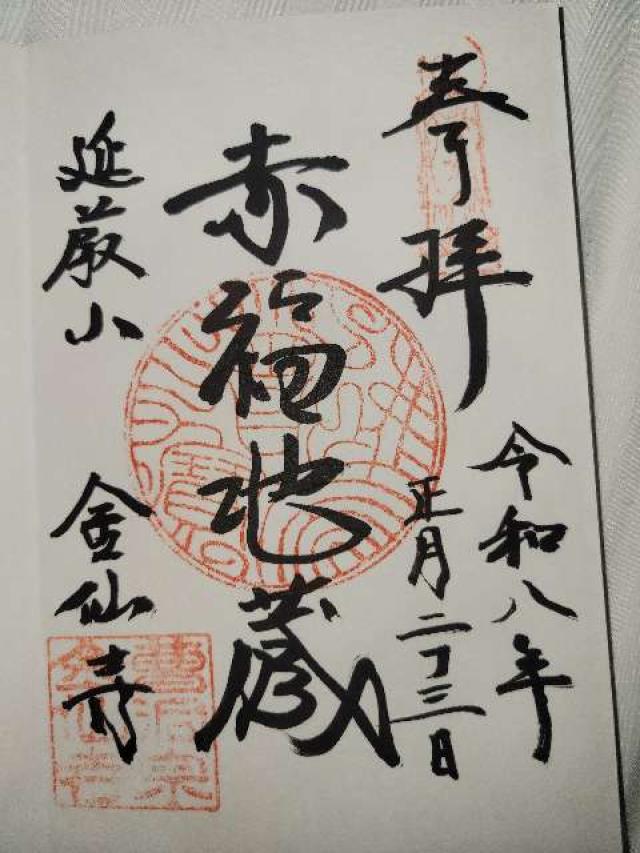 奉拝
令和八年
正月二十三日
赤福地蔵
延厳山
金仙寺